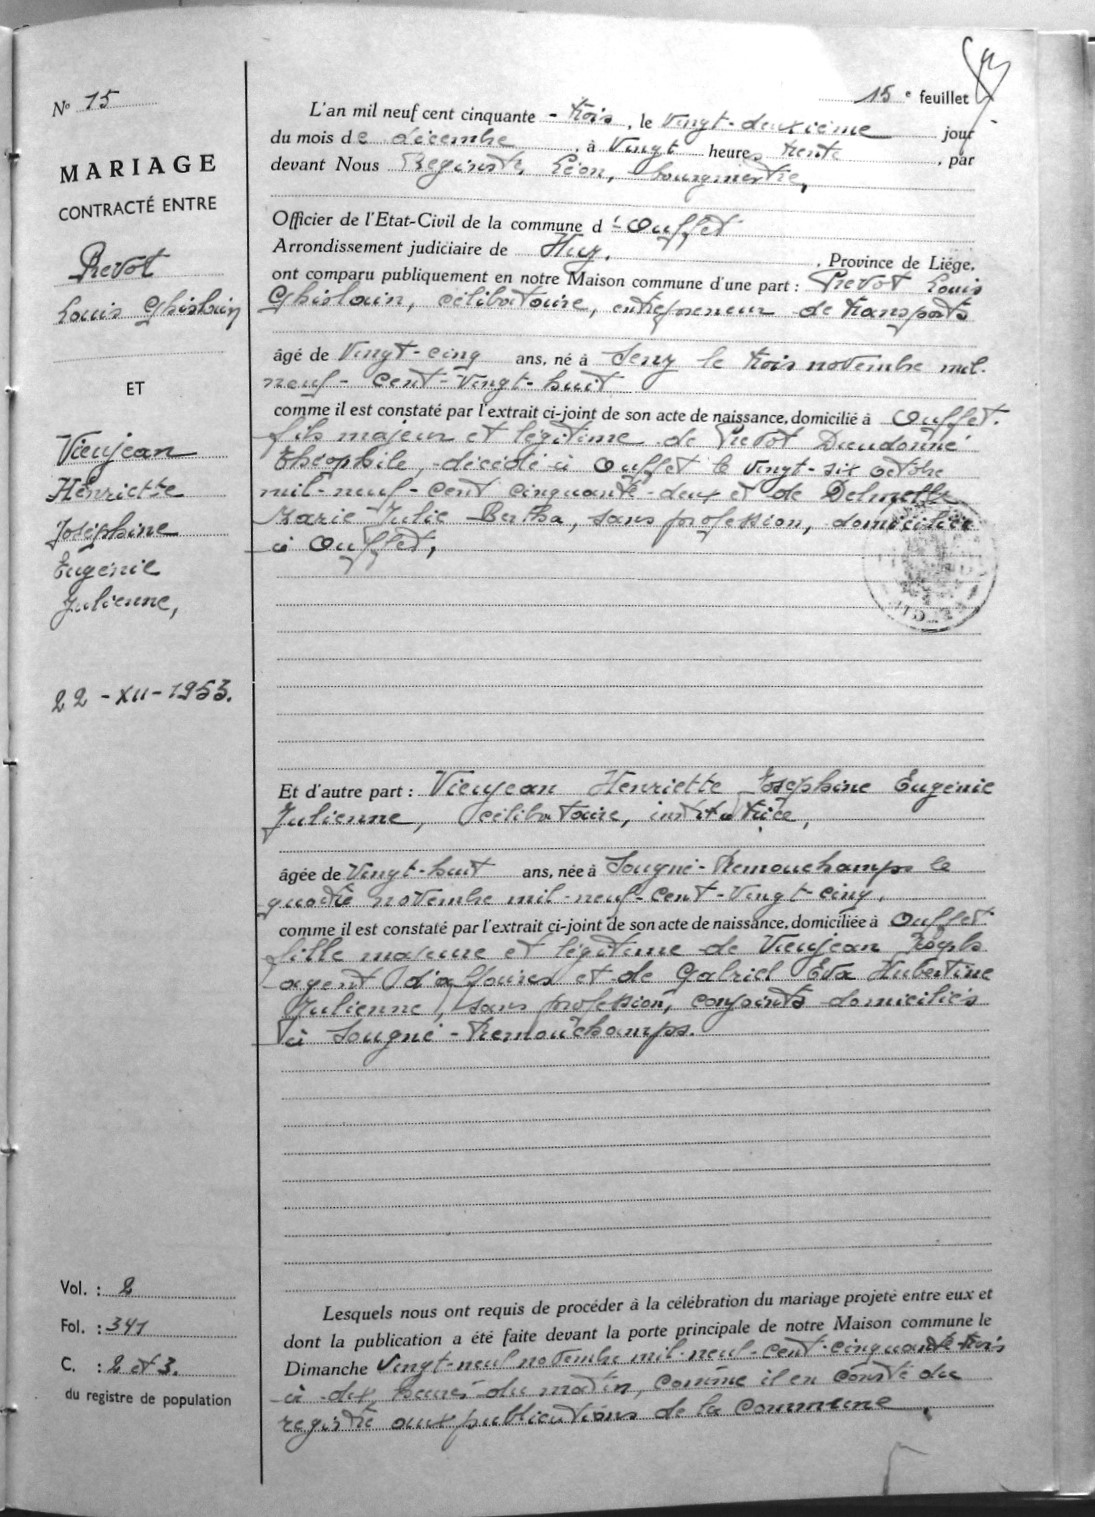 N° 15
MARIAGE
CONTRACTÉ ENTRE
Prevot
Louis Ghislain
ET
Vieujean
Henriette
Joséphine
Eugénie
Julienne,
22 - XII - 1953.
Vol. : 2
Fol. : 341
C. : 2 et 3.
du registre de population
15 e feuillet
L'an mil neuf cent cinquante - trois, le vingt-deuxième jour
du mois de décembre, à vingt heures trente, par
devant Nous Reginster, Léon, bourgmestre,
Officier de l'Etat-Civil de la commune d'Ouffet
Arrondissement judiciaire de Huy. , Province de Liége,
ont comparu publiquement en notre Maison commune d'une part : Prevot Louis
Ghislain, célibataire, entrepreneur de transports
âgé de Vingt-cinq ans, né à Seny le trois novembre mil-
neuf-cent-vingt-huit
comme il est constaté par l'extrait ci-joint de son acte de naissance, domicilié à Ouffet.
fils majeur et légitime de Prevot Dieudonné
Théophile, décédé à Ouffet le vingt-six octobre
mil-neuf-cent cinquante-deux et de
Marie Julie Bertha, sans profession, domiciliée
à Ouffet,
Et d'autre part : Vieujean Henriette Joséphine Eugénie
Julienne, célibataire, institutrice,
âgée de Vingt-huit ans, née à Sougné-Remouchamps le
quatre novembre mil-neuf-cent-vingt-cinq.
comme il est constaté par l'extrait ci-joint de son acte de naissance, domiciliée à Ouffet.
fille majeure et légitime de Vieujean Joseph
agent d'affaires et de Gabriel Eva Hubertine
Julienne, sans profession, conjoints domiciliés
à Sougné-Remouchamps.
Lesquels nous ont requis de procéder à la célébration du mariage projeté entre eux et
dont la publication a été faite devant la porte principale de notre Maison commune le
Dimanche vingt-neuf novembre mil-neuf-cent-cinquante-trois
à dix heures du matin, comme il en conste du
registre aux publications de la commune.